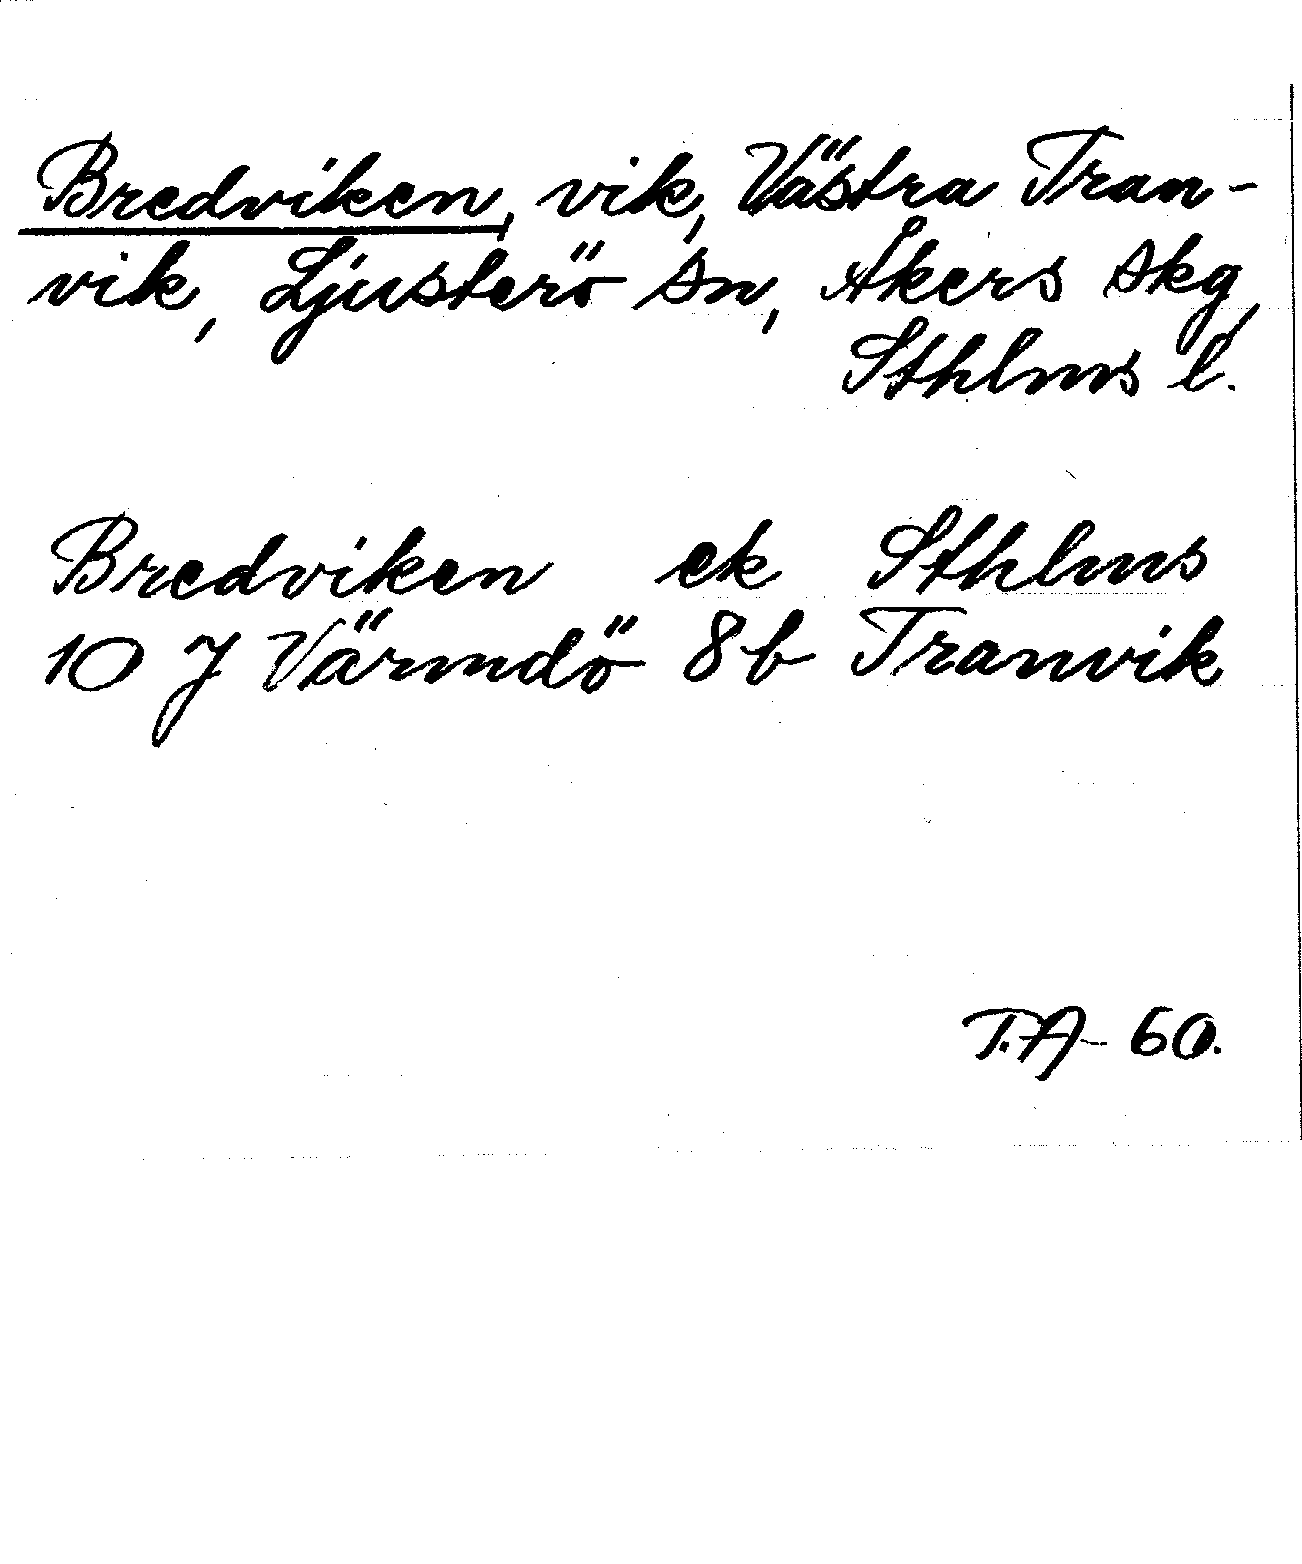 Bredviken, vik, Västra Tran-
vik, Ljusterö sn, Åkers skg,
Sthlms l.
Bredviken ek Sthlms
10 J Värmdö 8b Tranvik
T.A- 60.